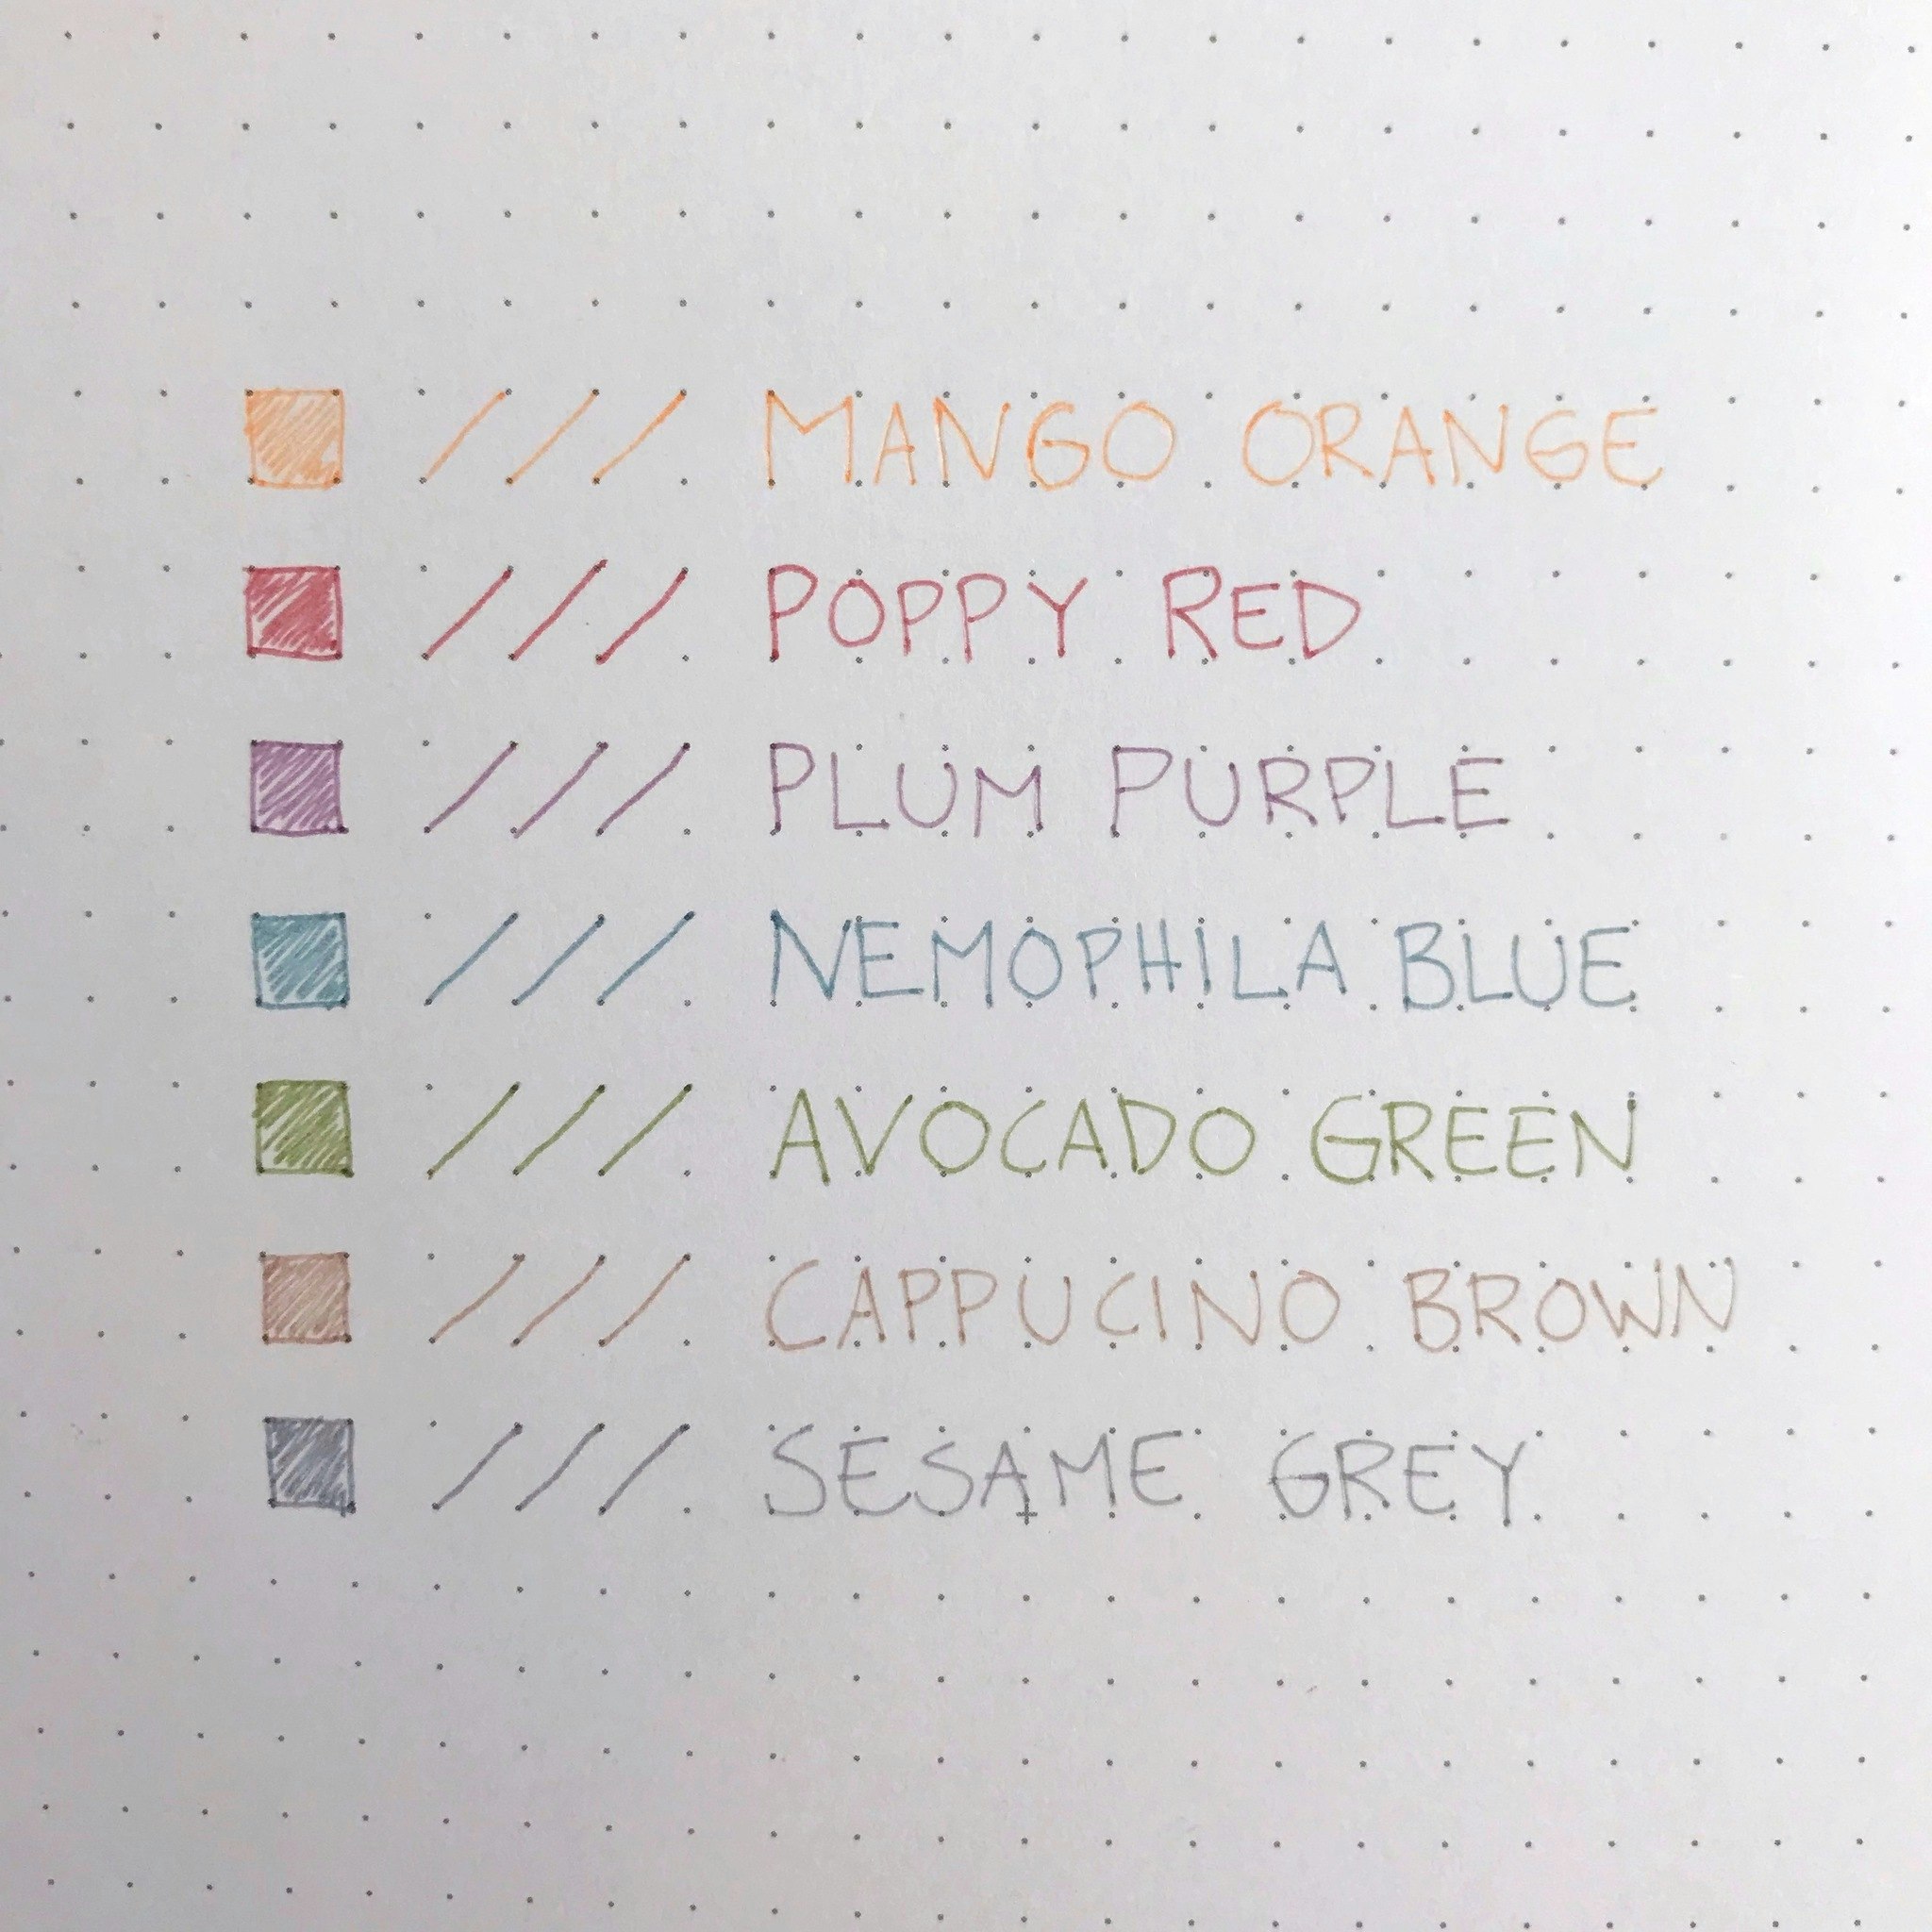 MANGO ORANGE
POPPY RED
PLUM PURPLE
NEMOPHILA BLUE
AVOCADO GREEN
CAPPUCINO BROWN
SESAME GREY